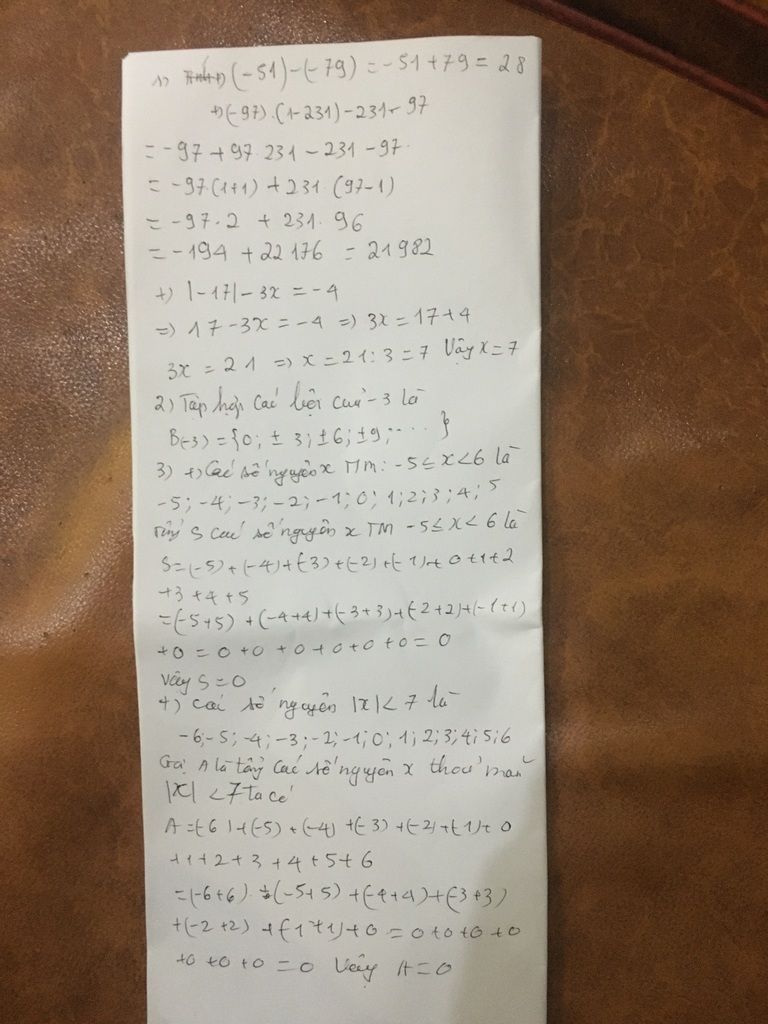 1) (-51)-(-79) = -51+79 = 28
+)(-97).(1-231)-231-97
= -97 + 97.231 - 231 - 97.
= -97.(1+1) + 231.(97-1)
= -97.2 + 231.96
= -194 + 22176 = 21982
+) |-17| - 3x = -4
=> 17-3x = -4 => 3x = 17+4
3x = 21 => x = 21:3 = 7 Vậy x = 7
2) Tập hợp các bội của -3 là
B(-3) = {0; ±3; ±6; ±9; .... }
3) +) Các số nguyên x TM: -5 ≤ x < 6 là
-5; -4; -3; -2; -1; 0; 1; 2; 3; 4; 5
Tổng S các số nguyên x TM -5 ≤ x < 6 là
S = (-5) + (-4) + (-3) + (-2) + (-1) + 0+1+2
+3+4+5
= (-5+5) + (-4+4) + (-3+3) + (-2+2) + (-1+1)
+0 = 0+0+0+0+0+0 = 0
Vậy S = 0
+) Các số nguyên |x| < 7 là
-6; -5; -4; -3; -2; -1; 0; 1; 2; 3; 4; 5; 6
Gọi A là tổng các số nguyên x thoả mãn
|x| < 7 ta có
A = (-6) + (-5) + (-4) + (-3) + (-2) + (-1) + 0
+1+2+3+4+5+6
= (-6+6) + (-5+5) + (-4+4) + (-3+3)
+(-2+2) + (-1+1) + 0 = 0+0+0+0
+0+0+0 = 0 Vậy A = 0